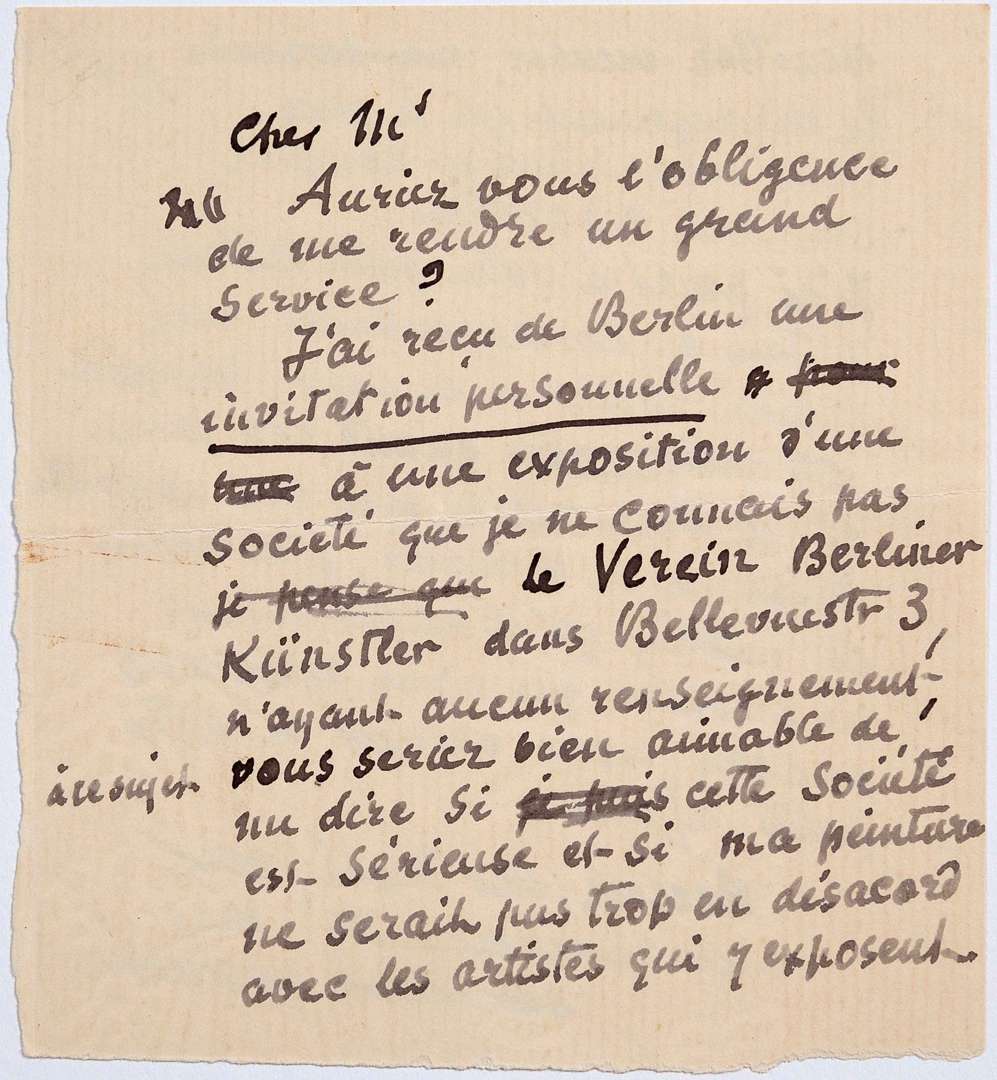 Cher Mr
Auriez vous l'obligence
de me rendre un grand
Service ?
J'ai reçu de Berlin une
invitation personnelle pour
une à une exposition d'une
Société que je ne connais pas
je pense que le Verein Berliner
Künstler dans Bellevuestr 3,
n'ayant aucun renseignement,
à ce sujet vous seriez bien aimable de
me dire si je puis cette Société
est Sérieuse et si ma peinture
ne serait pas trop en désacord
avec les artistes qui y exposent.